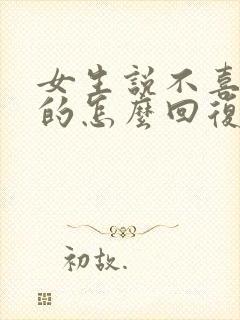 女生説不喜
的怎麼回復
初故.